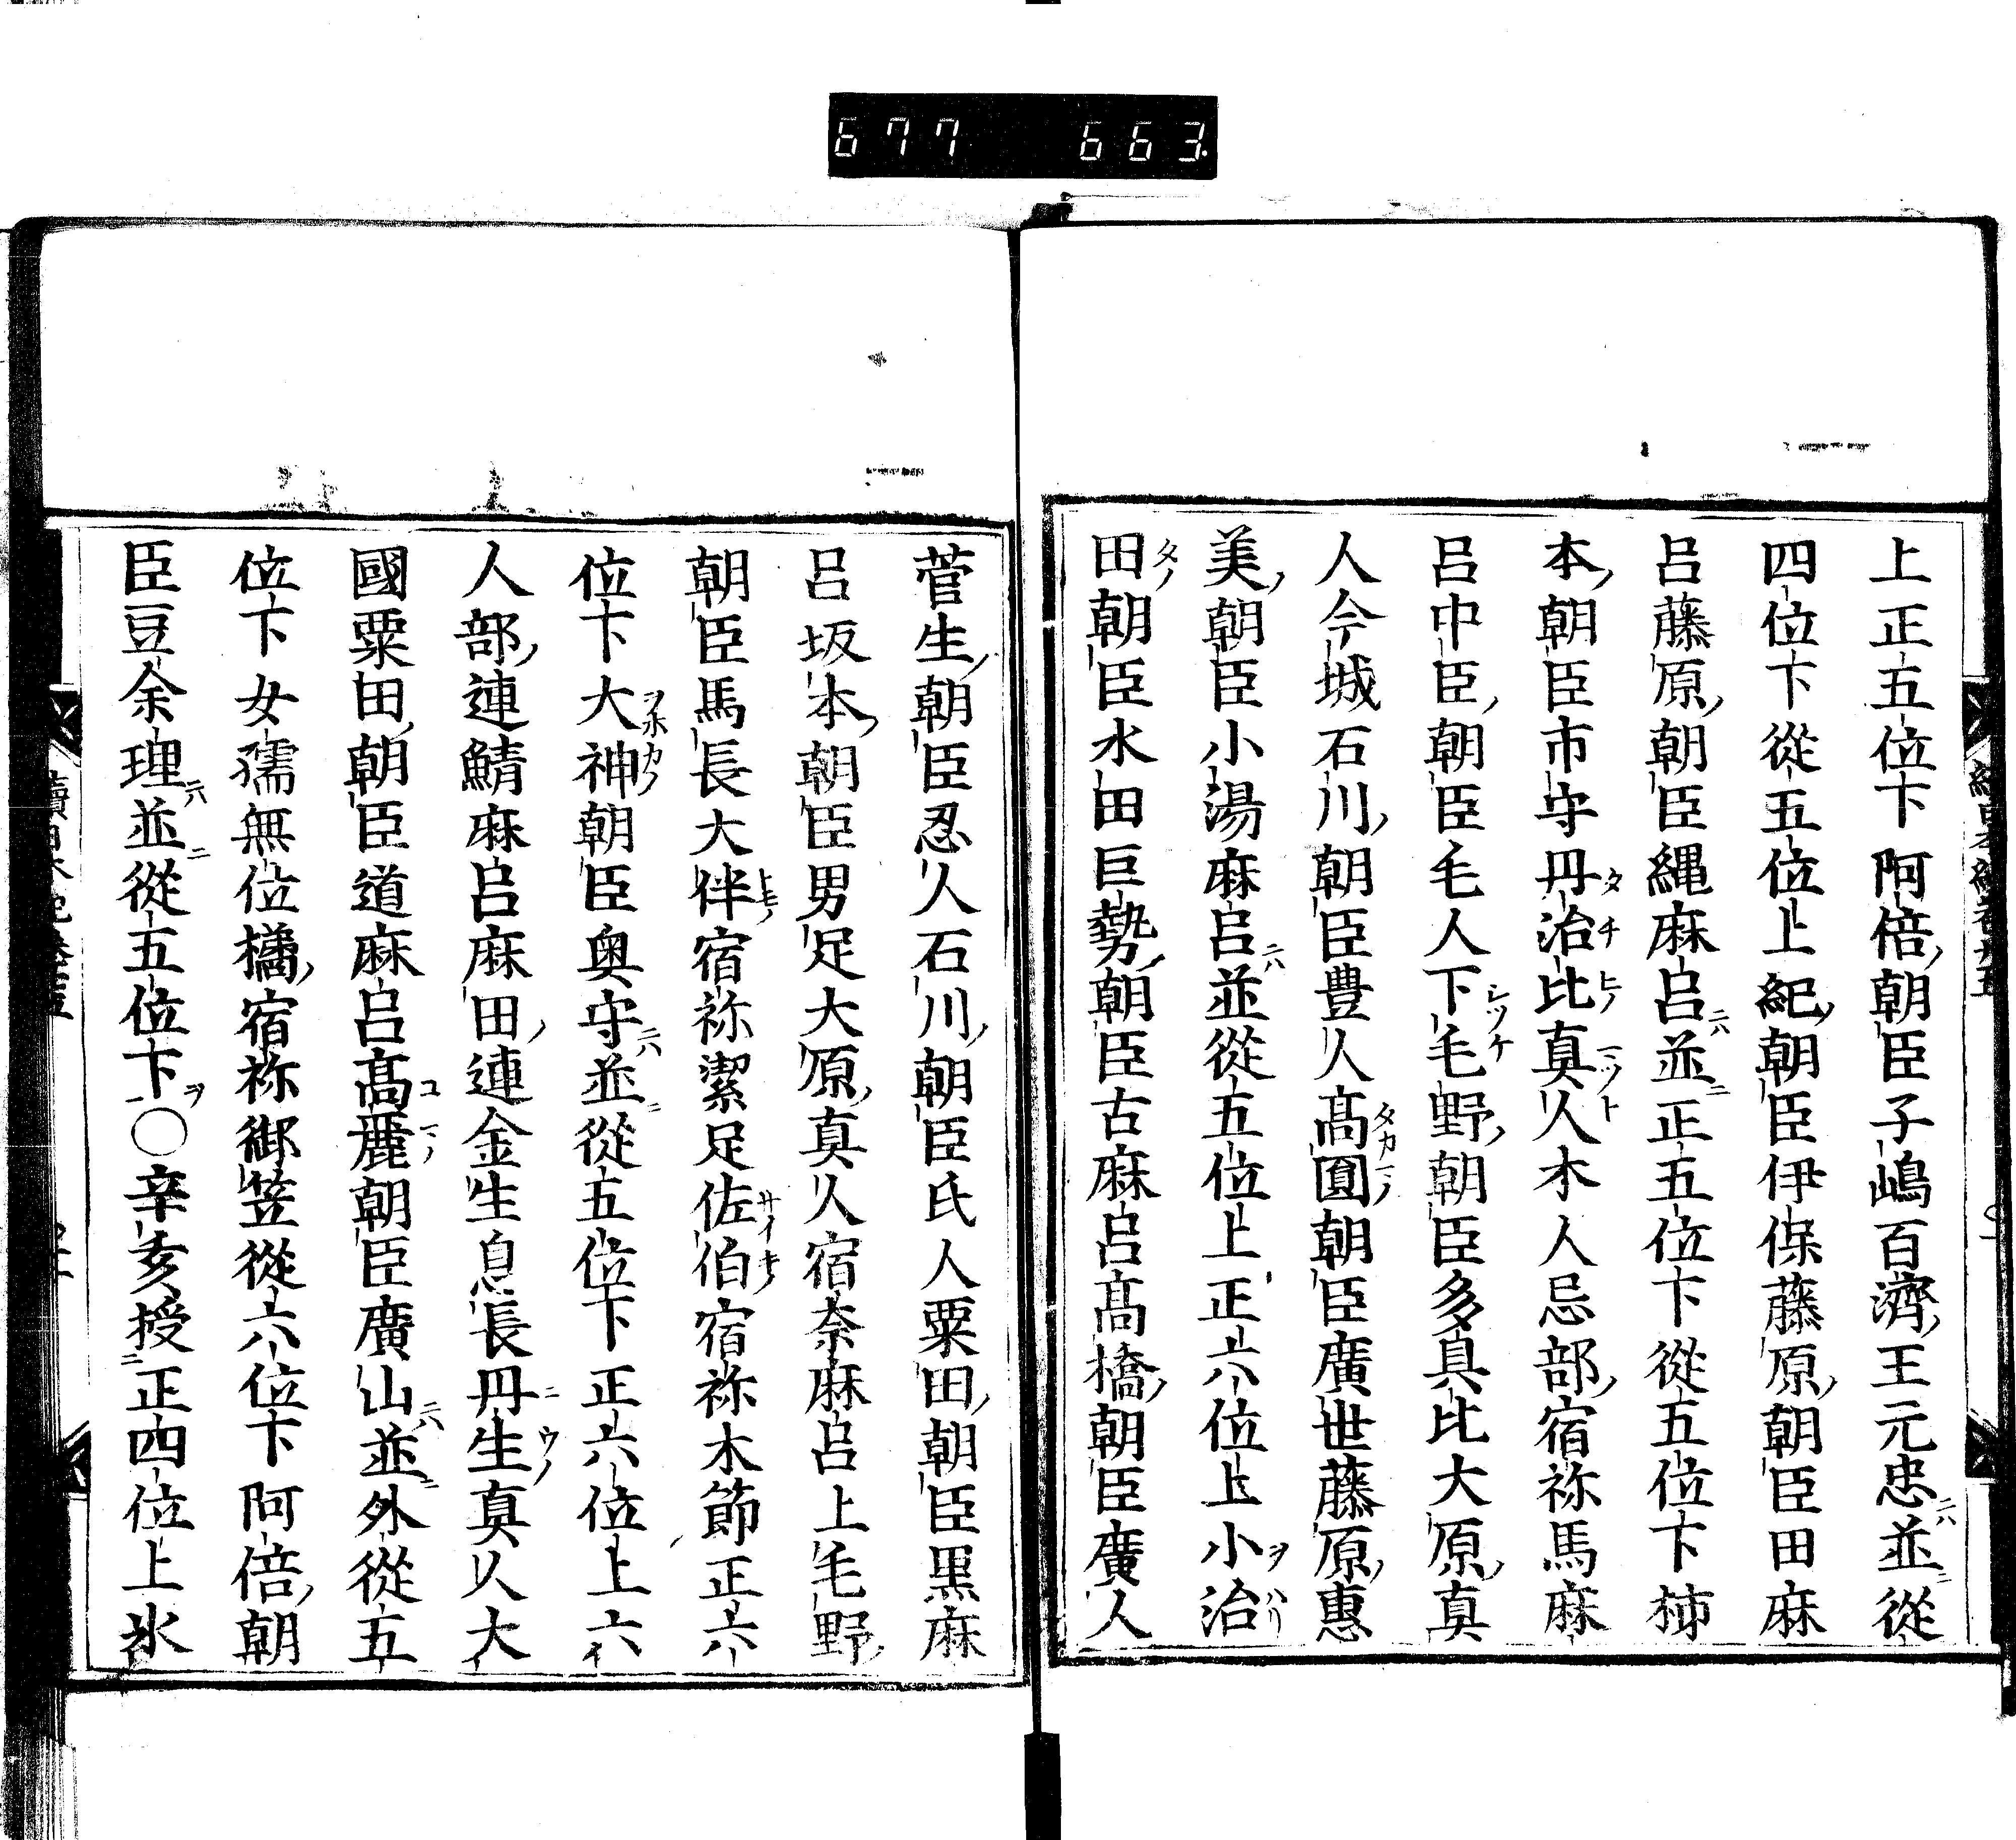 677 663.
上正五位下阿倍朝臣子嶋百濟王元忠並從
四位下從五位上紀朝臣伊保藤原朝臣田麻
呂藤原朝臣縄麻呂並正五位下從五位下柿
本朝臣市守丹治比真人木人忌部宿祢馬麻
呂中臣朝臣毛人下毛野朝臣多具比大原真
人今城石川朝臣豊人髙圓朝臣廣世藤原惠
美朝臣小湯麻呂並從五位上正六位上小治
田朝臣水田巨勢朝臣古麻呂髙橋朝臣廣人
菅生朝臣忍人石川朝臣氏人粟田朝臣黒麻
呂坂本朝臣男足大原真人宿奈麻呂上毛野
朝臣馬長大伴宿祢潔足佐伯宿祢木節正六
位下大神朝臣奥守並從五位下正六位上六
人部連鯖麻呂麻田連金生息長丹生真人大
國粟田朝臣道麻呂髙麗朝臣廣山並外從五
位下女孺無位橘宿祢御笠從六位下阿倍朝
臣豆余理並從五位下○辛亥授正四位上氷